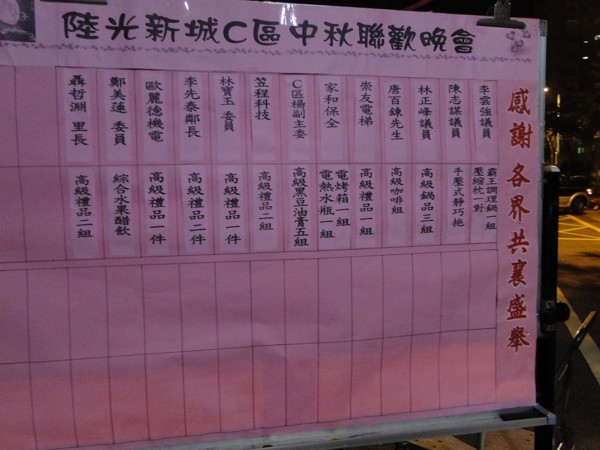 陸光新城C區中秋聯歡晚會
感謝各界共襄盛舉
李雲強議員
霸王調理鍋一組
壓縮枕一對
陳志謀議員
手壓式靜巧拖
林正峰議員
高級鍋品三組
唐百鍊先生
高級咖啡組
崇友電梯
高級禮品一組
家和保全
電烤箱一組
電熱水瓶一組
C區楊副主委
高級黑豆油膏五組
笠程科技
高級禮品二組
林寶玉 委員
高級禮品一件
李先泰鄰長
高級禮品二件
歐麗德機電
高級禮品一件
鄭美蓮 委員
綜合水果醋飲
聶哲淵 里長
高級禮品二組